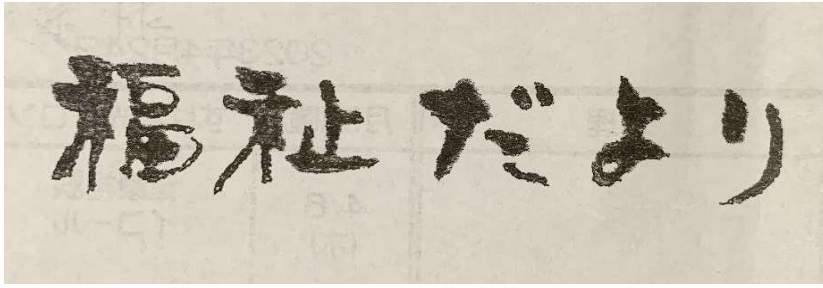 福祉だより